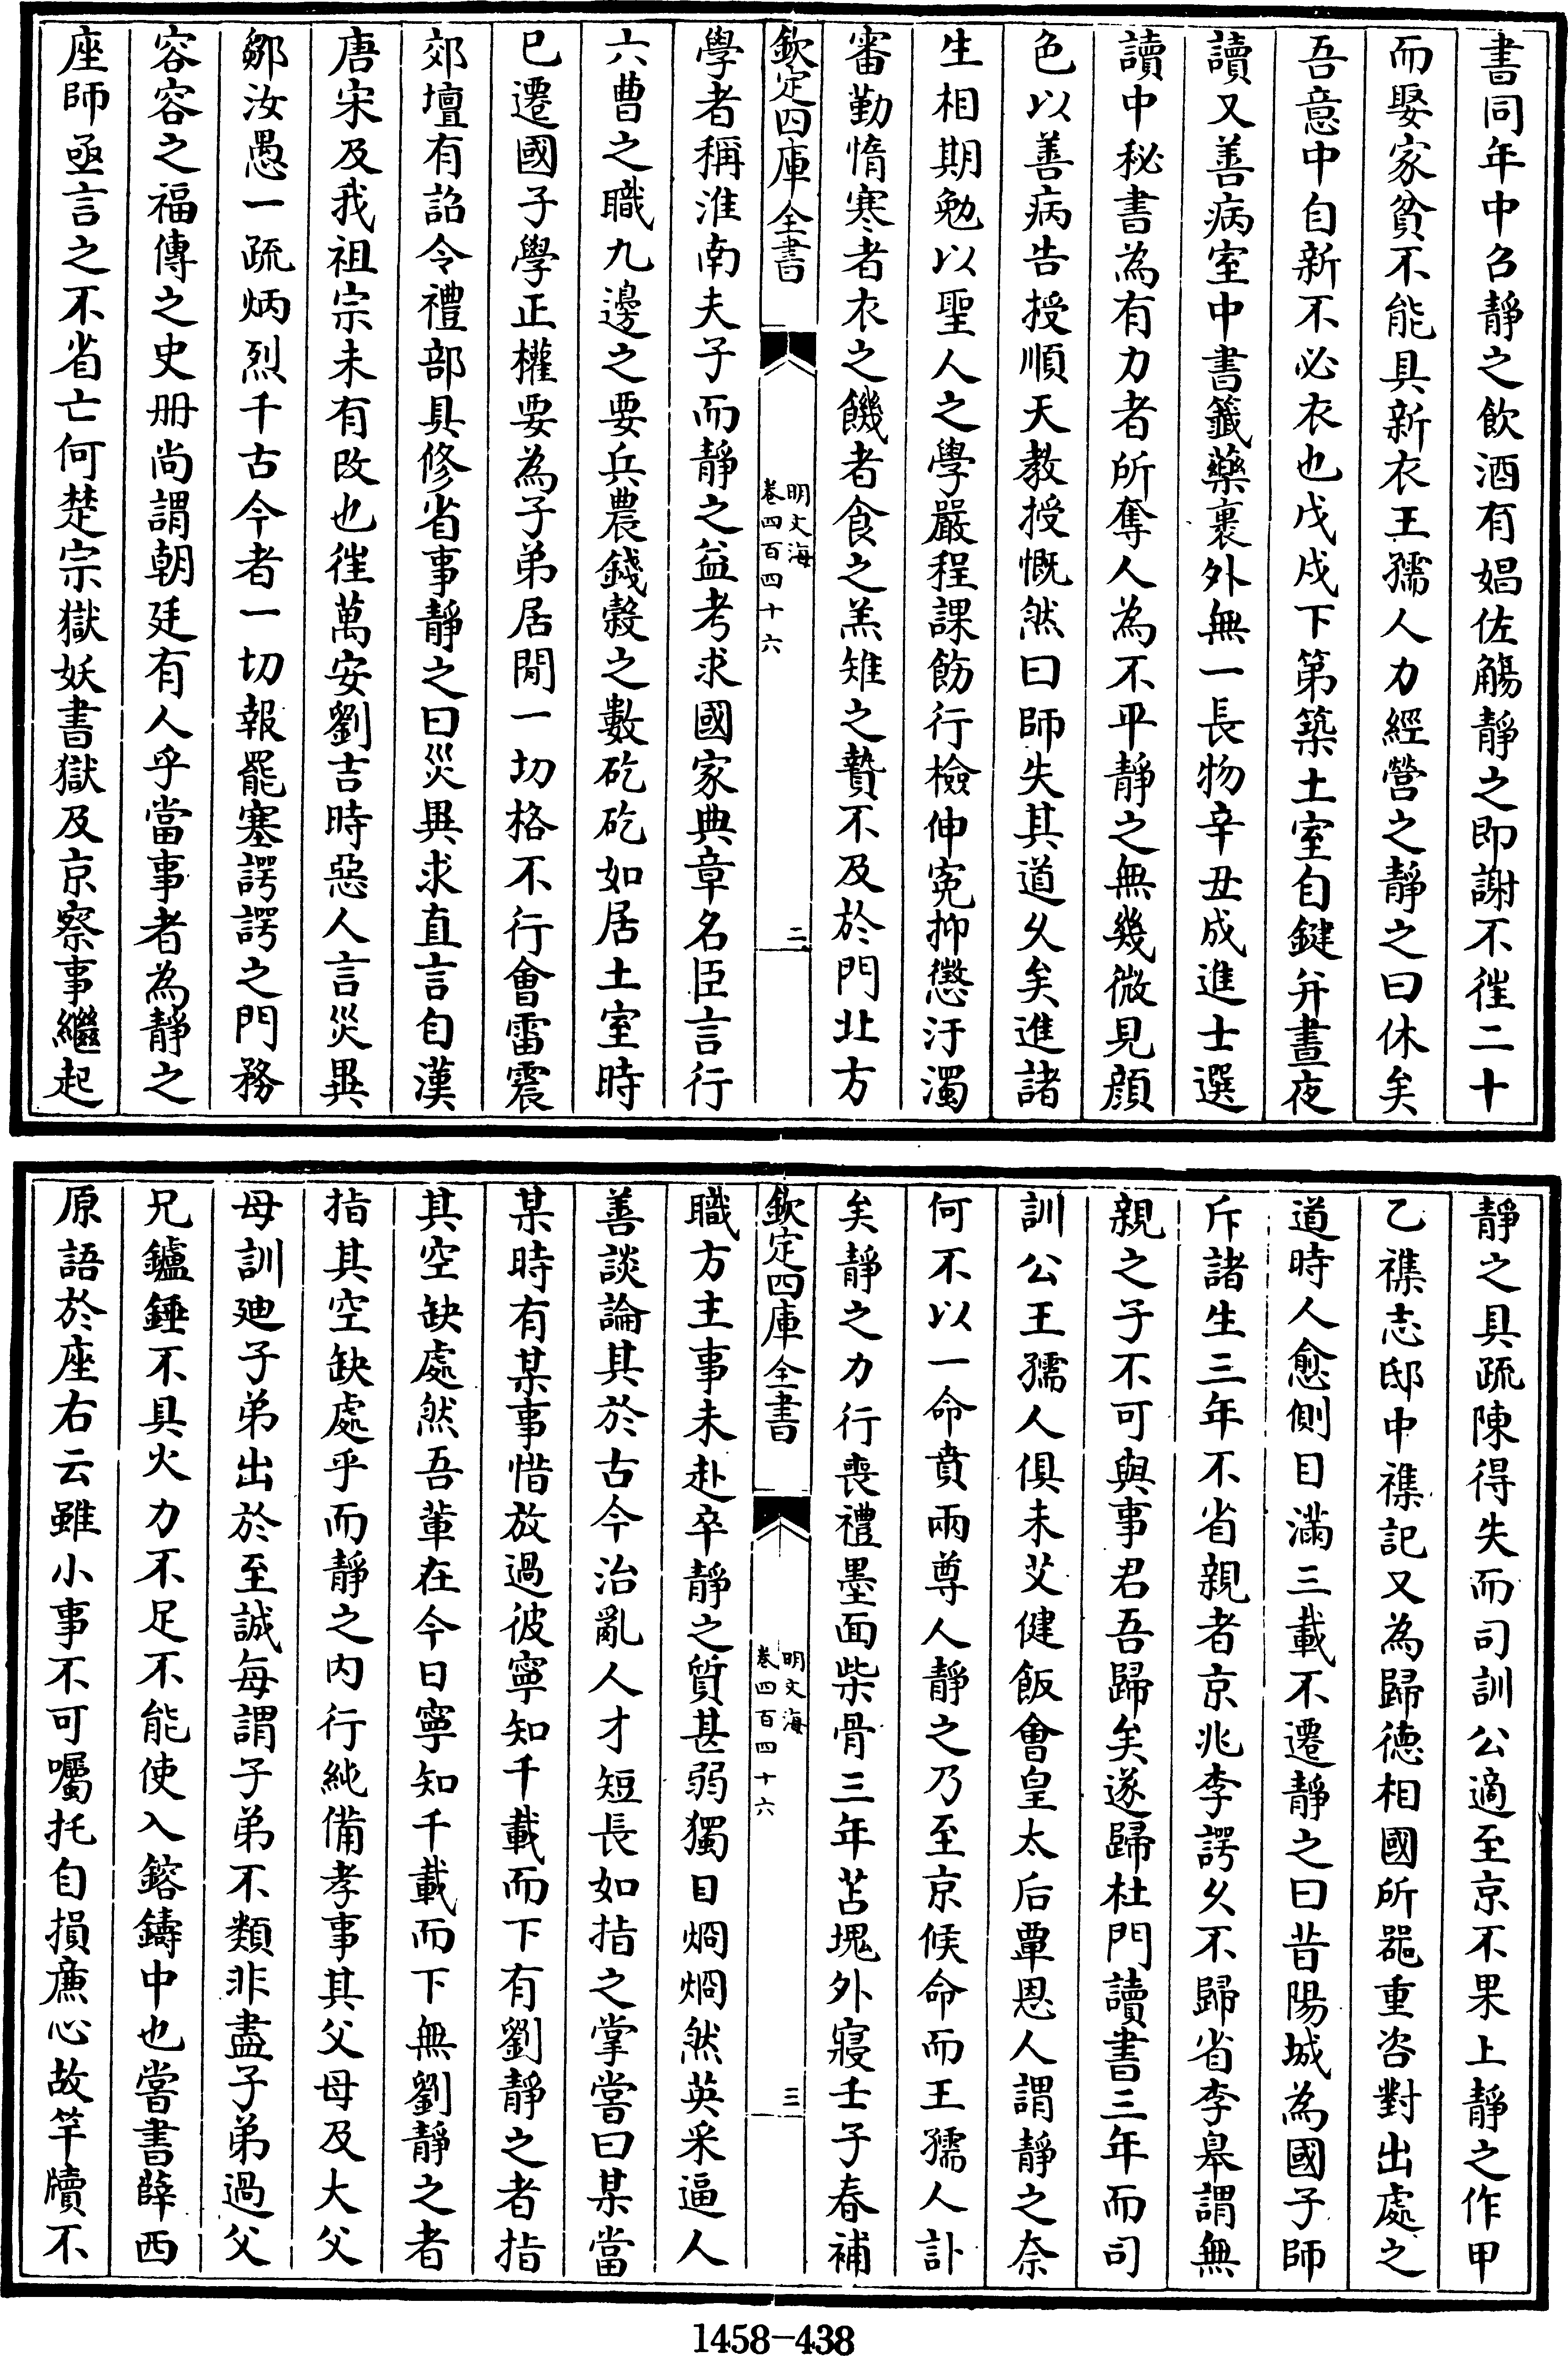 書同年中召靜之飲酒有娼佐觴靜之即謝不徃二十
而娶家貧不能具新衣王孺人力經營之靜之曰休矣
吾意中自新不必衣也戊戌下第築土室自鍵弁晝夜
讀又善病室中書籤藥裹外無一長物辛丑成進士選
讀中秘書為有力者所奪人為不平靜之無幾微見顔
色以善病告授順天教授慨然曰師失其道乆矣進諸
生相期勉以聖人之學嚴程課飭行檢伸寃抑懲汙濁
審勤惰寒者衣之饑者食之羔雉之贄不及於門北方
欽定四庫全書
明文海
卷四百四十六
二
學者稱淮南夫子而靜之益考求國家典章名臣言行
六曹之職九邊之要兵農錢穀之數矻矻如居土室時
已遷國子學正權要為子弟居間一切格不行會雷震
郊壇有詔令禮部具修省事靜之曰災異求直言自漢
唐宋及我祖宗未有改也徃萬安劉吉時惡人言災異
鄒汝愚一疏炳烈千古今者一切報罷塞諤諤之門務
容容之福傳之史册尚謂朝廷有人乎當事者為靜之
座師亟言之不省亡何楚宗獄妖書獄及京察事繼起
靜之具疏陳得失而司訓公適至京不果上靜之作甲
乙襍志邸中襍記又為歸德相國所噐重咨對出處之
道時人愈側目滿三載不遷靜之曰昔陽城為國子師
斥諸生三年不省親者京兆李諤乆不歸省李皋謂無
親之子不可與事君吾歸矣遂歸杜門讀書三年而司
訓公王孺人俱未艾健飯會皇太后覃恩人謂靜之奈
何不以一命賁兩尊人靜之乃至京候命而王孺人訃
矣靜之力行喪禮墨面柴骨三年苫塊外寢壬子春補
欽定四庫全書
明文海
卷四百四十六
三
職方主事未赴卒靜之質甚弱獨目烱烱然英采逼人
善談論其於古今治亂人才短長如指之掌嘗曰某當
某時有某事惜放過彼寧知千載而下有劉靜之者指
其空缺處然吾輩在今日寧知千載而下無劉靜之者
指其空缺處乎而靜之内行純備孝事其父母及大父
母訓廸子弟出於至誠每謂子弟不類非盡子弟過父
兄鑪錘不具火力不足不能使入鎔鑄中也嘗書薛西
原語於座右云雖小事不可囑托自損廉心故竿牘不
1458-438